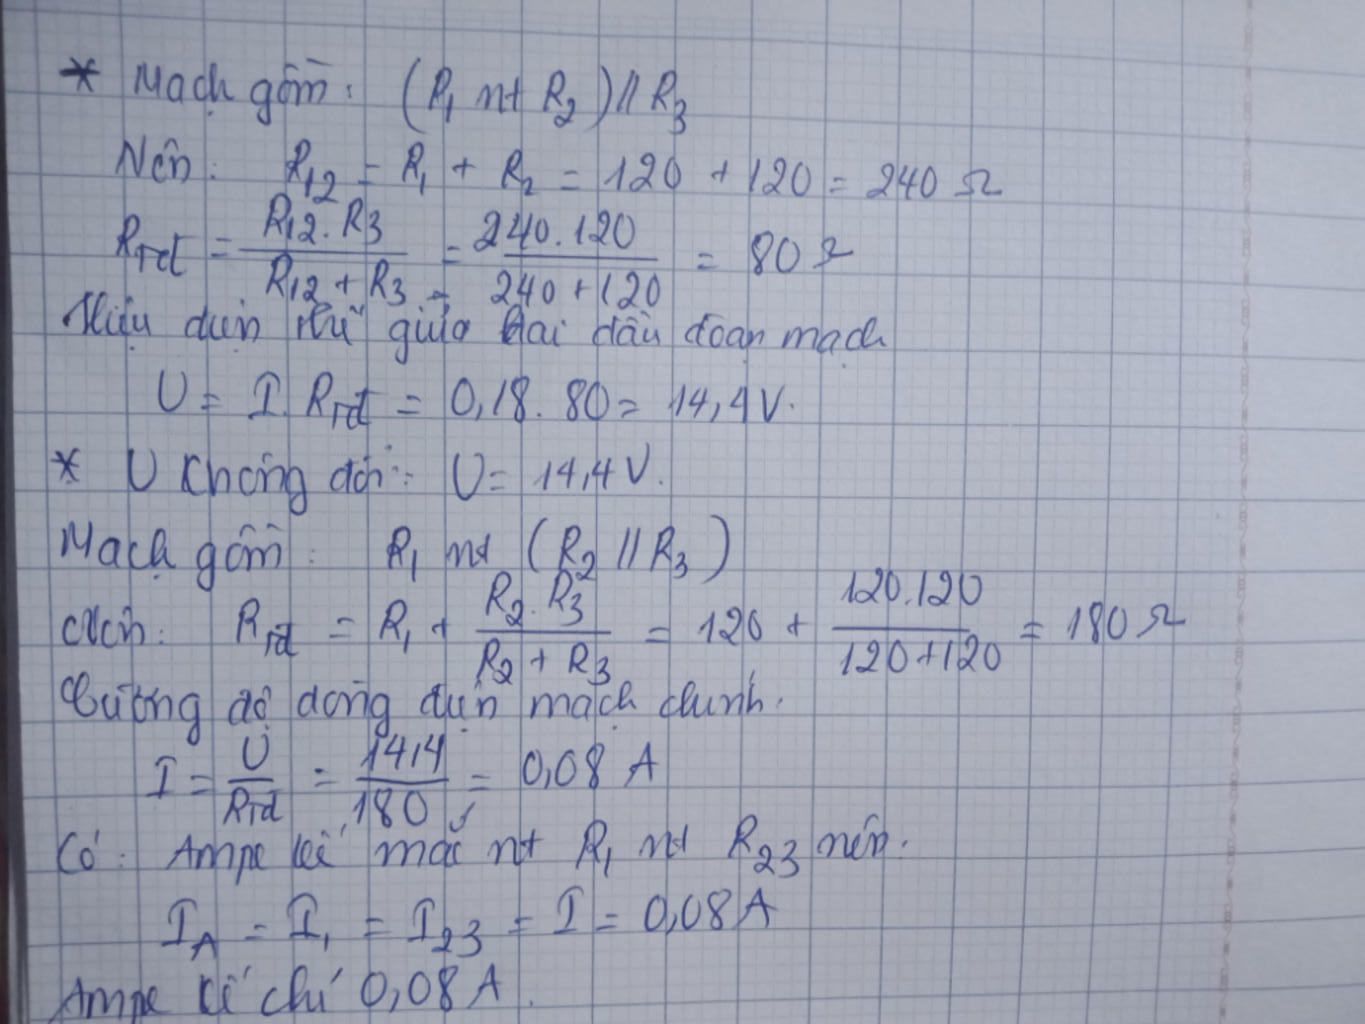 * Mạch gồm: (R₁ nt R₂) // R₃
Nên: R₁₂ = R₁ + R₂ = 120 + 120 = 240 Ω
Rtđ = R₁₂.R₃ / R₁₂ + R₃ = 240.120 / 240 + 120 = 80 Ω
Hiệu điện thế giữa hai đầu đoạn mạch
U = I. Rtđ = 0,18. 80 = 14,4 V.
* U không đổi: U = 14,4 V.
Mạch gồm: R₁ nt (R₂ // R₃)
Nên: Rtđ = R₁ + R₂.R₃ / R₂ + R₃ = 120 + 120.120 / 120+120 = 180 Ω
Cường độ dòng điện mạch chính.
I = U / Rtđ = 14,4 / 180 = 0,08 A
Có: Ampe kế mắc nt R₁ nt R₂₃ nên.
I_A = I₁ = I₂₃ = I = 0,08 A
Ampe kế chỉ 0,08 A.